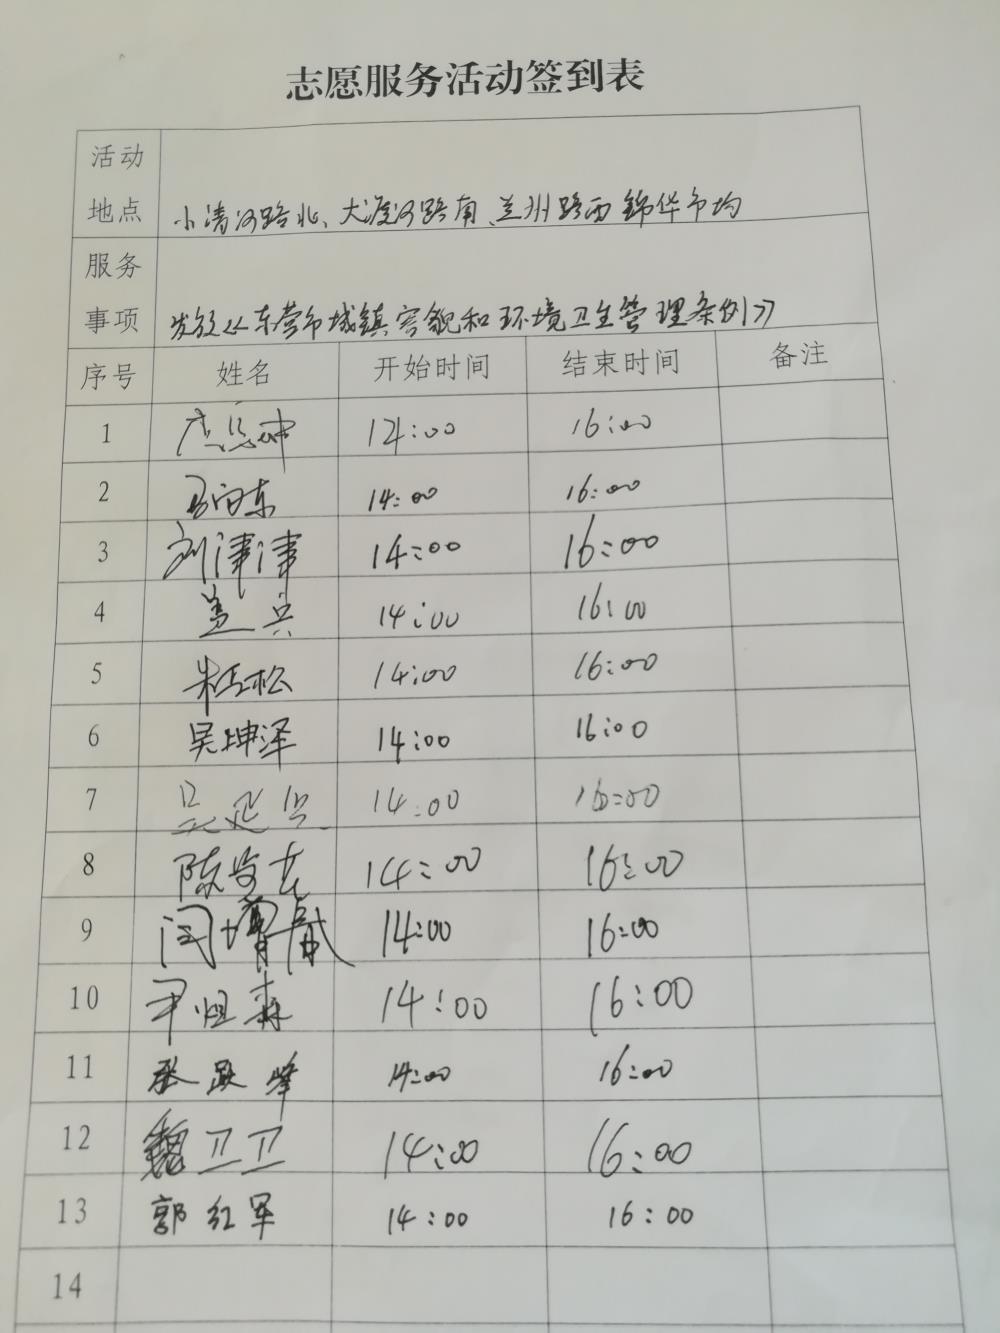 志愿服务活动签到表
活动
地点 小清河路北、大渡河路南、兰州路西锦华市均
服务
事项 发放《东营市城镇容貌和环境卫生管理条例》
序号 姓名 开始时间 结束时间 备注
1 14:00 16:00
2 14:00 16:00
3 刘津津 14:00 16:00
4 盖兵 14:00 16:00
5 松 14:00 16:00
6 吴坤泽 14:00 16:00
7 14:00 16:00
8 陈 14:00 16:00
9 闫 14:00 16:00
10 尹 森 14:00 16:00
11 张跃峰 14:00 16:00
12 魏卫卫 14:00 16:00
13 郭红军 14:00 16:00
14